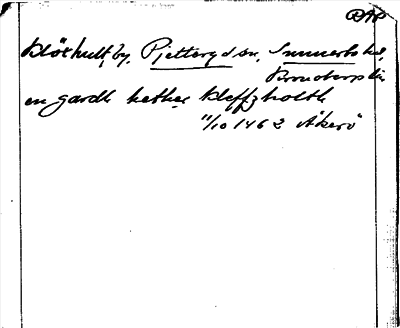 DAP
Klöthult, by, Pjetteryd sn, Sunnerbo hd,
Kronobergs län
en gardh hether Kleffzholth
11/10 1462 Åkerö